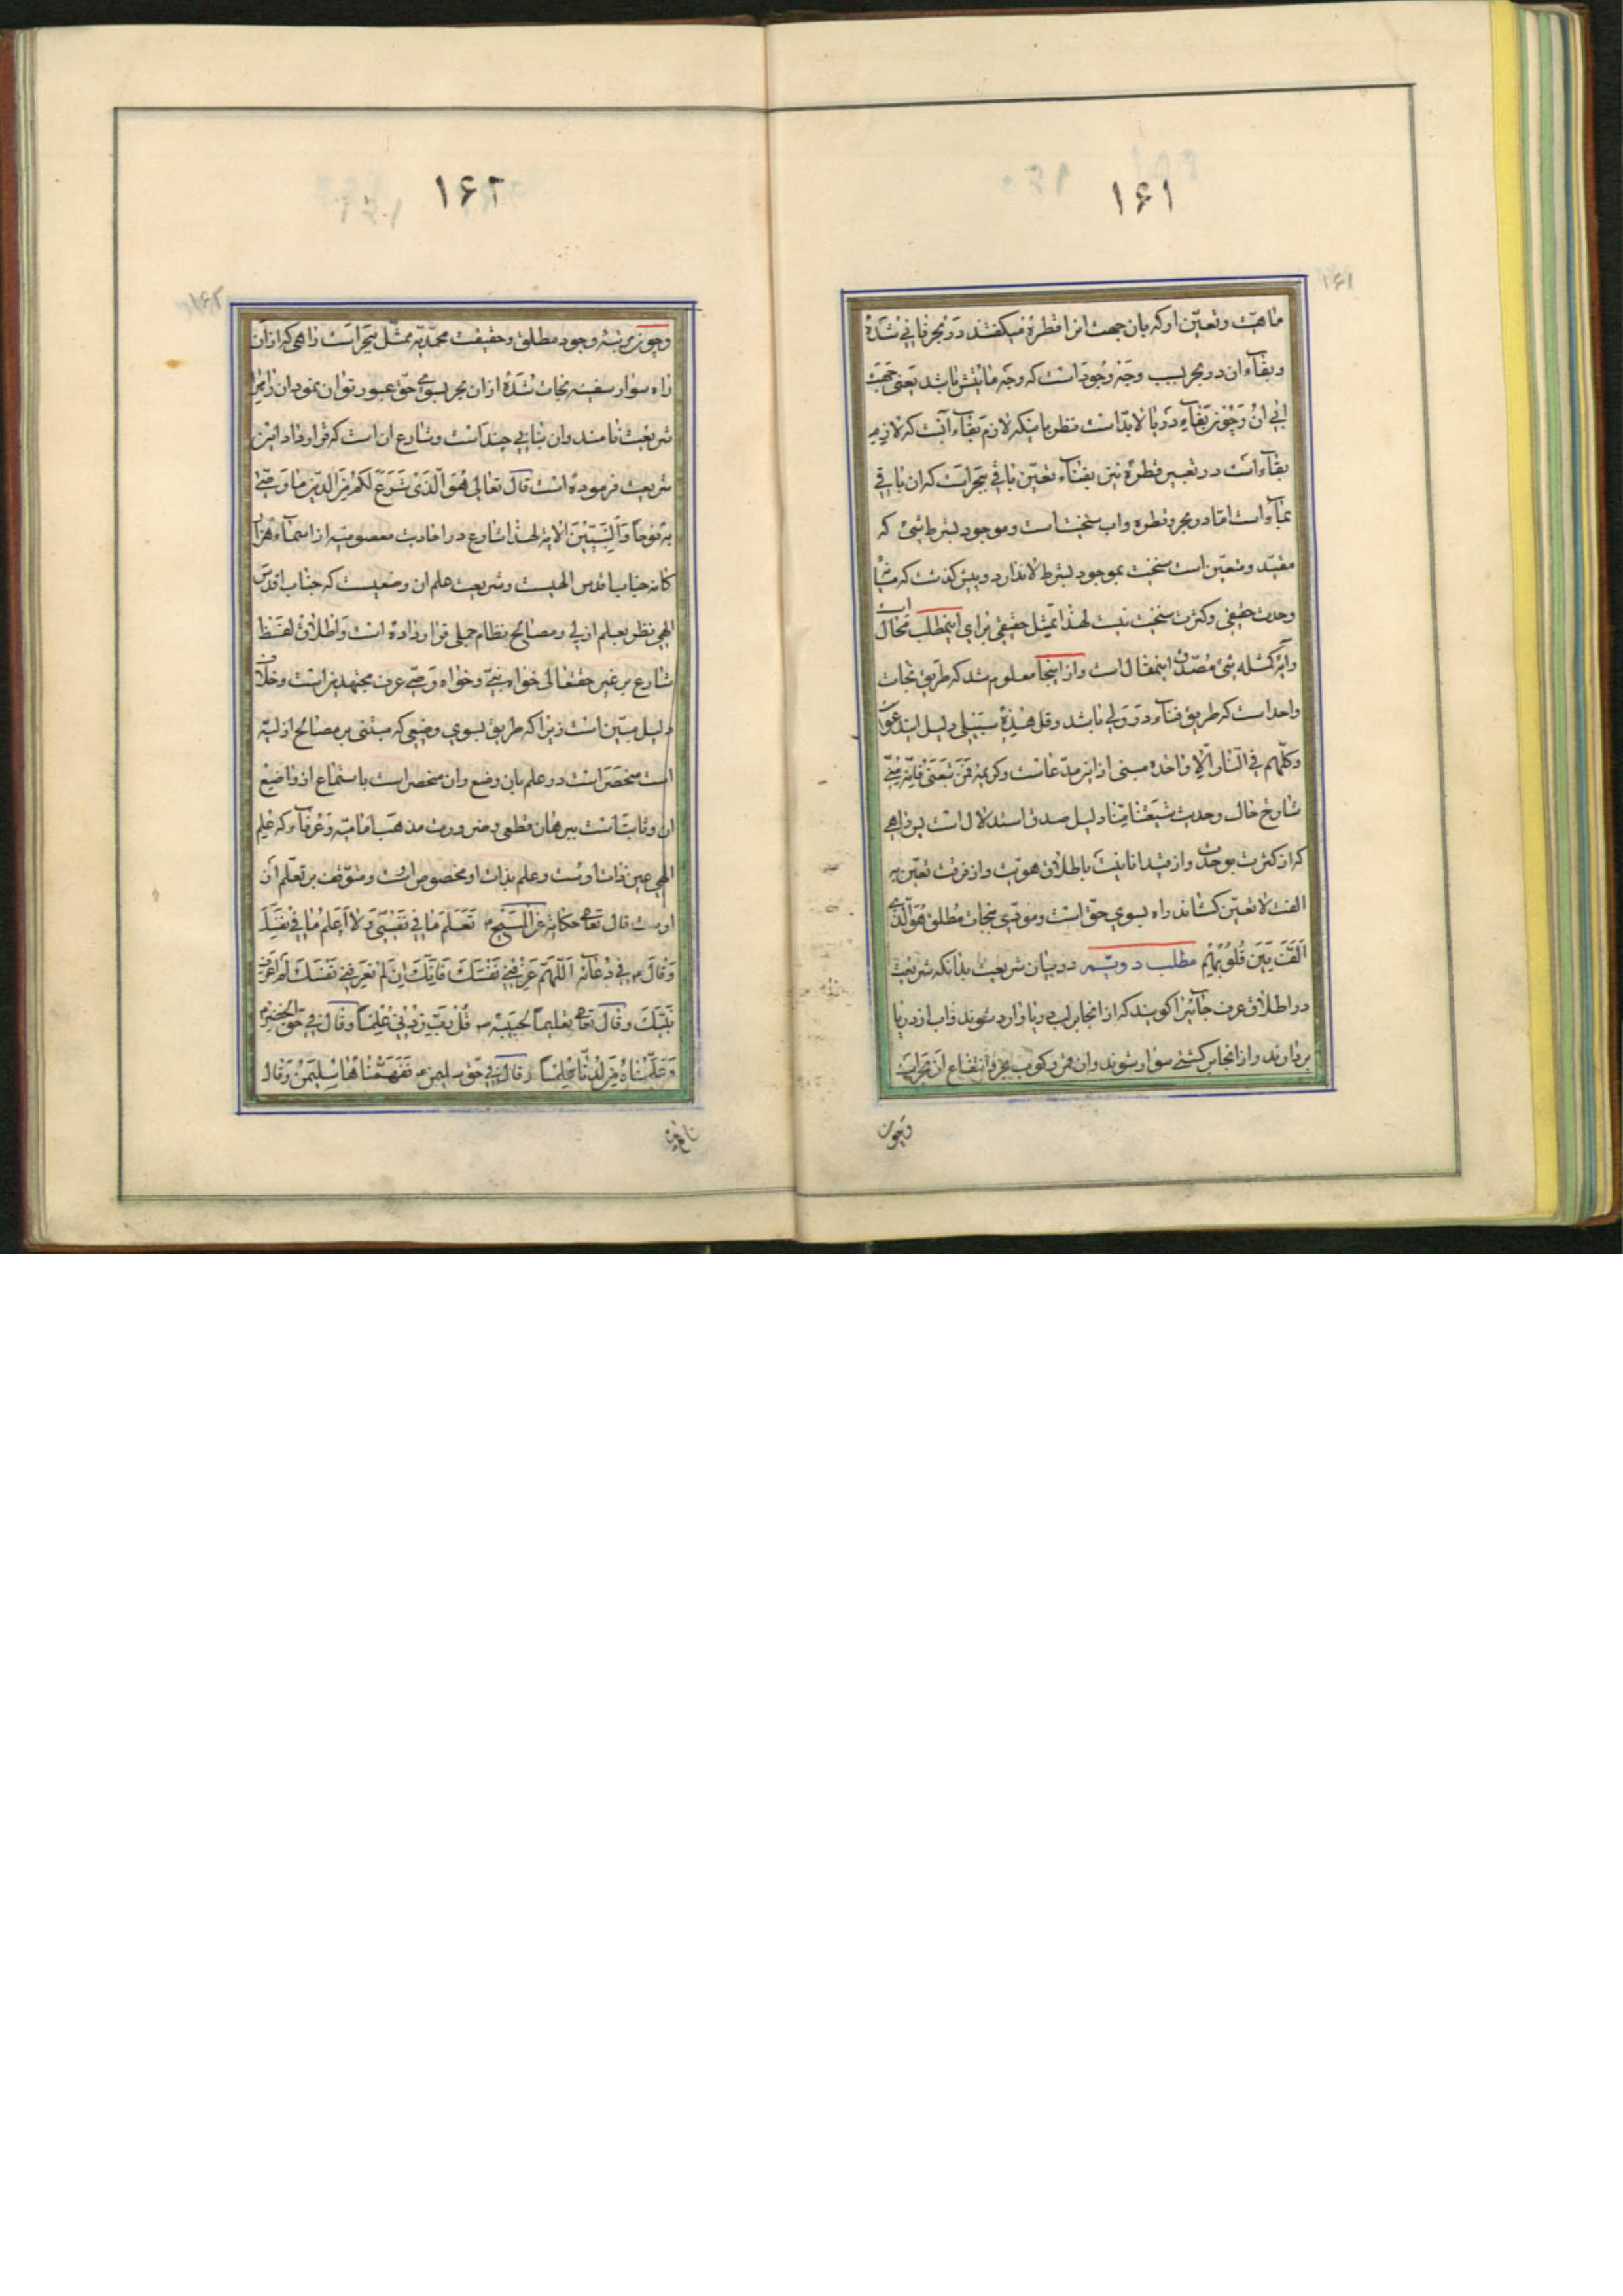 ۱۶۱
ماهیّت و تعیّن او که بان جهت انرا قطره میکفتند در بحر فانی شده
و بقاء ان در بحر بسبب وجه وجود است که وجه مابقش باشد یعنی جهت
بقاء در دریا لابدّ است نظر باینکه لازم بقاء
بقاء است در تعبیر قطره نیز بفناء تعیّن باقی ببحر است که ان باقی
بماء است امّا در بحر و قطره و اب سنخیت است و موجود بشرط شیء که
مقیّد و متعیّن است سنخیت بموجود بشرط لا ندارد و پیش کذشت که میان
وحدت حقیقی و کثرت سنخیت نیست لهذا تمثیل حقیقی برای اینمطلب محال است
و لیس کمثله شیء مصدّق اینمقال است و از اینجا معلوم شد که طریق نجات
واحد است که طریق فناء در ولی باشد و قل هذه سبیلی دلیل ایندعوی
و کلّهم فی النّار الّا واحدة مبنی از این مدّعاست و کریمه فَمَنْ تَبِعَنی فَاِنَّهُ مِنّی
شارح حال و حدیث شیعتنا منّا دلیل صدق استدلال است پس راهی
که از کثرت بوحدت و از قید انانیّت باطلاق هویّت و از فرقت تعیّن به
الفت لا تعیّن کشاند راه بسوی حقّ است و مؤدّی بنجات مطلق هُوَ الّذی
اَلَّفَ بَیْنَ قُلُوبِهِم مطلب دویّم در بیان شریعت بدانکه شریعت
در اطلاق عرف جائیرا کویند که از انجا بر لب دریا وارد شوند و اب از دریا
بردارند و از انجا بر کشتی سوار شوند و ان
و چون
۱۶۲
و چون مرتبه وجود مطلق و حقیقت محمّدیّه بمثل بحر است راهی که از ان
راه سوار سفینه نجات شده از ان بحر بسوی حقّ عبور توان نمود ان را نیز
شریعت نامند و ان بنابی چند است و شارع ان است که قرارداد این
شریعت فرموده است قال تعالی هُوَ الَّذی شَرَعَ لَکُمْ مِنَ الدّینِ ما وَصّی
بِهِ نُوحاً وَ النَّبِیّینَ الآیه لهذا شارع در احادیث معصومیّه از اسماء
جناب اقدس الهیست و شریعت علم ان وضعیست که جناب اقدس
الهی نظر بعلم ازلی و مصالح نظام جملی قرار داده است و اطلاق لفظ
شارع بر غیر حقتعالی خواه نبیّ و خواه وصیّ عرف مجتهدین است و خلاف
دلیل مبیّن است زیرا که طریق بسوی وضعی که مبتنی بر مصالح ازلیّه
است منحصر است در علم بان وضع و ان منحصر است باستماع از واضع
ان و ثابت است ببرهان قطعی و ضرورت مذهب امامیّه و عرفاء که علم
الهی عین ذات اوست و علم بذات او مخصوص اوست و متوقّف بر تعلّم ان
اوست قال تعا حکایة عن المسیح تَعْلَمُ ما فی نَفْسی وَ لا اَعْلَمُ ما فی نَفْسِکَ
وَ قالَ فی دُعائه اَللّهُمَّ عَرِّفْنی نَفْسَکَ فَاِنَّکَ اِنْ لَمْ تُعَرِّفْنی نَفْسَکَ لَمْ اَعْرِفْ
نَبِیَّکَ و قال تعا تعلیماً لحبیبه قُلْ رَبِّ زِدْنی عِلْماً وَ قالَ فی حَقّ الخضر
وَ عَلَّمْناهُ مِنْ لَدُنّا عِلْماً و قال فی حقّ سلیمن فَفَهَّمْناها سُلَیْمنَ وَ قال